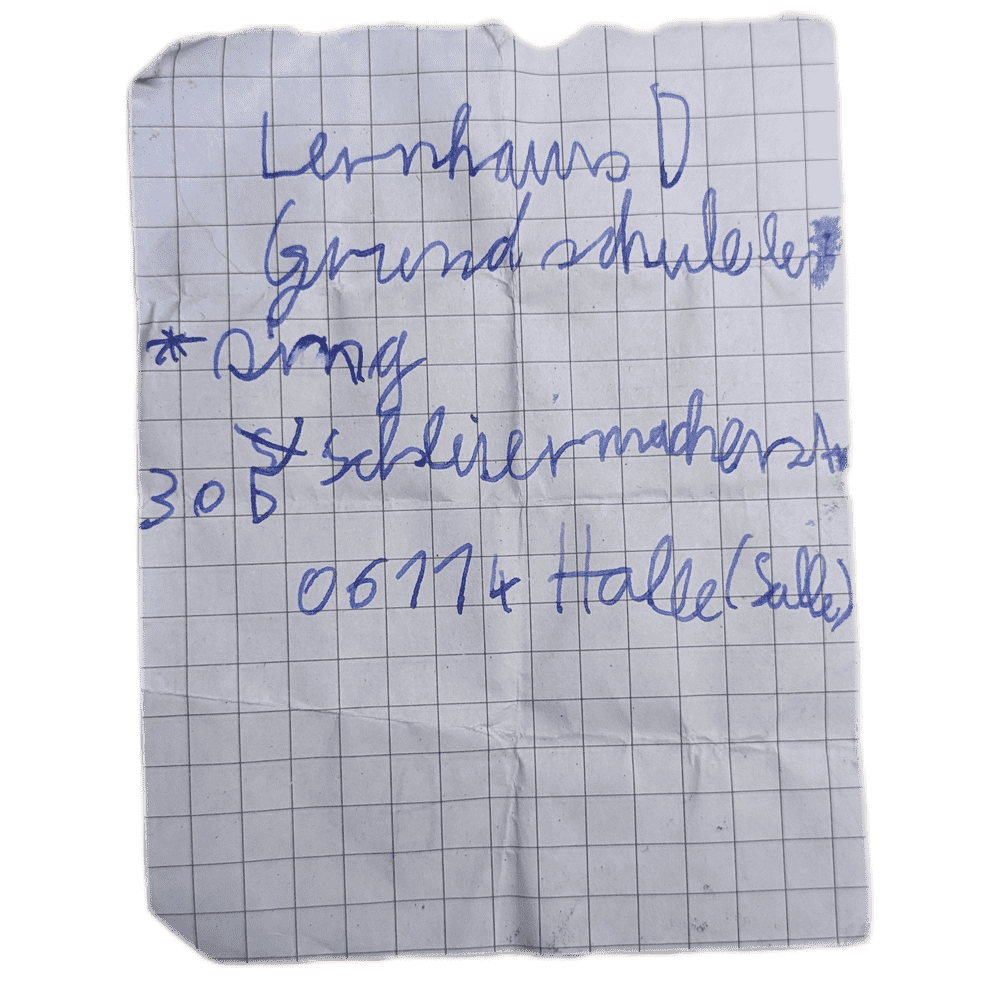 Lernhaus D
Grundschule les
* sing
Schleiermacherstr
30 b
06114 Halle (Salle)